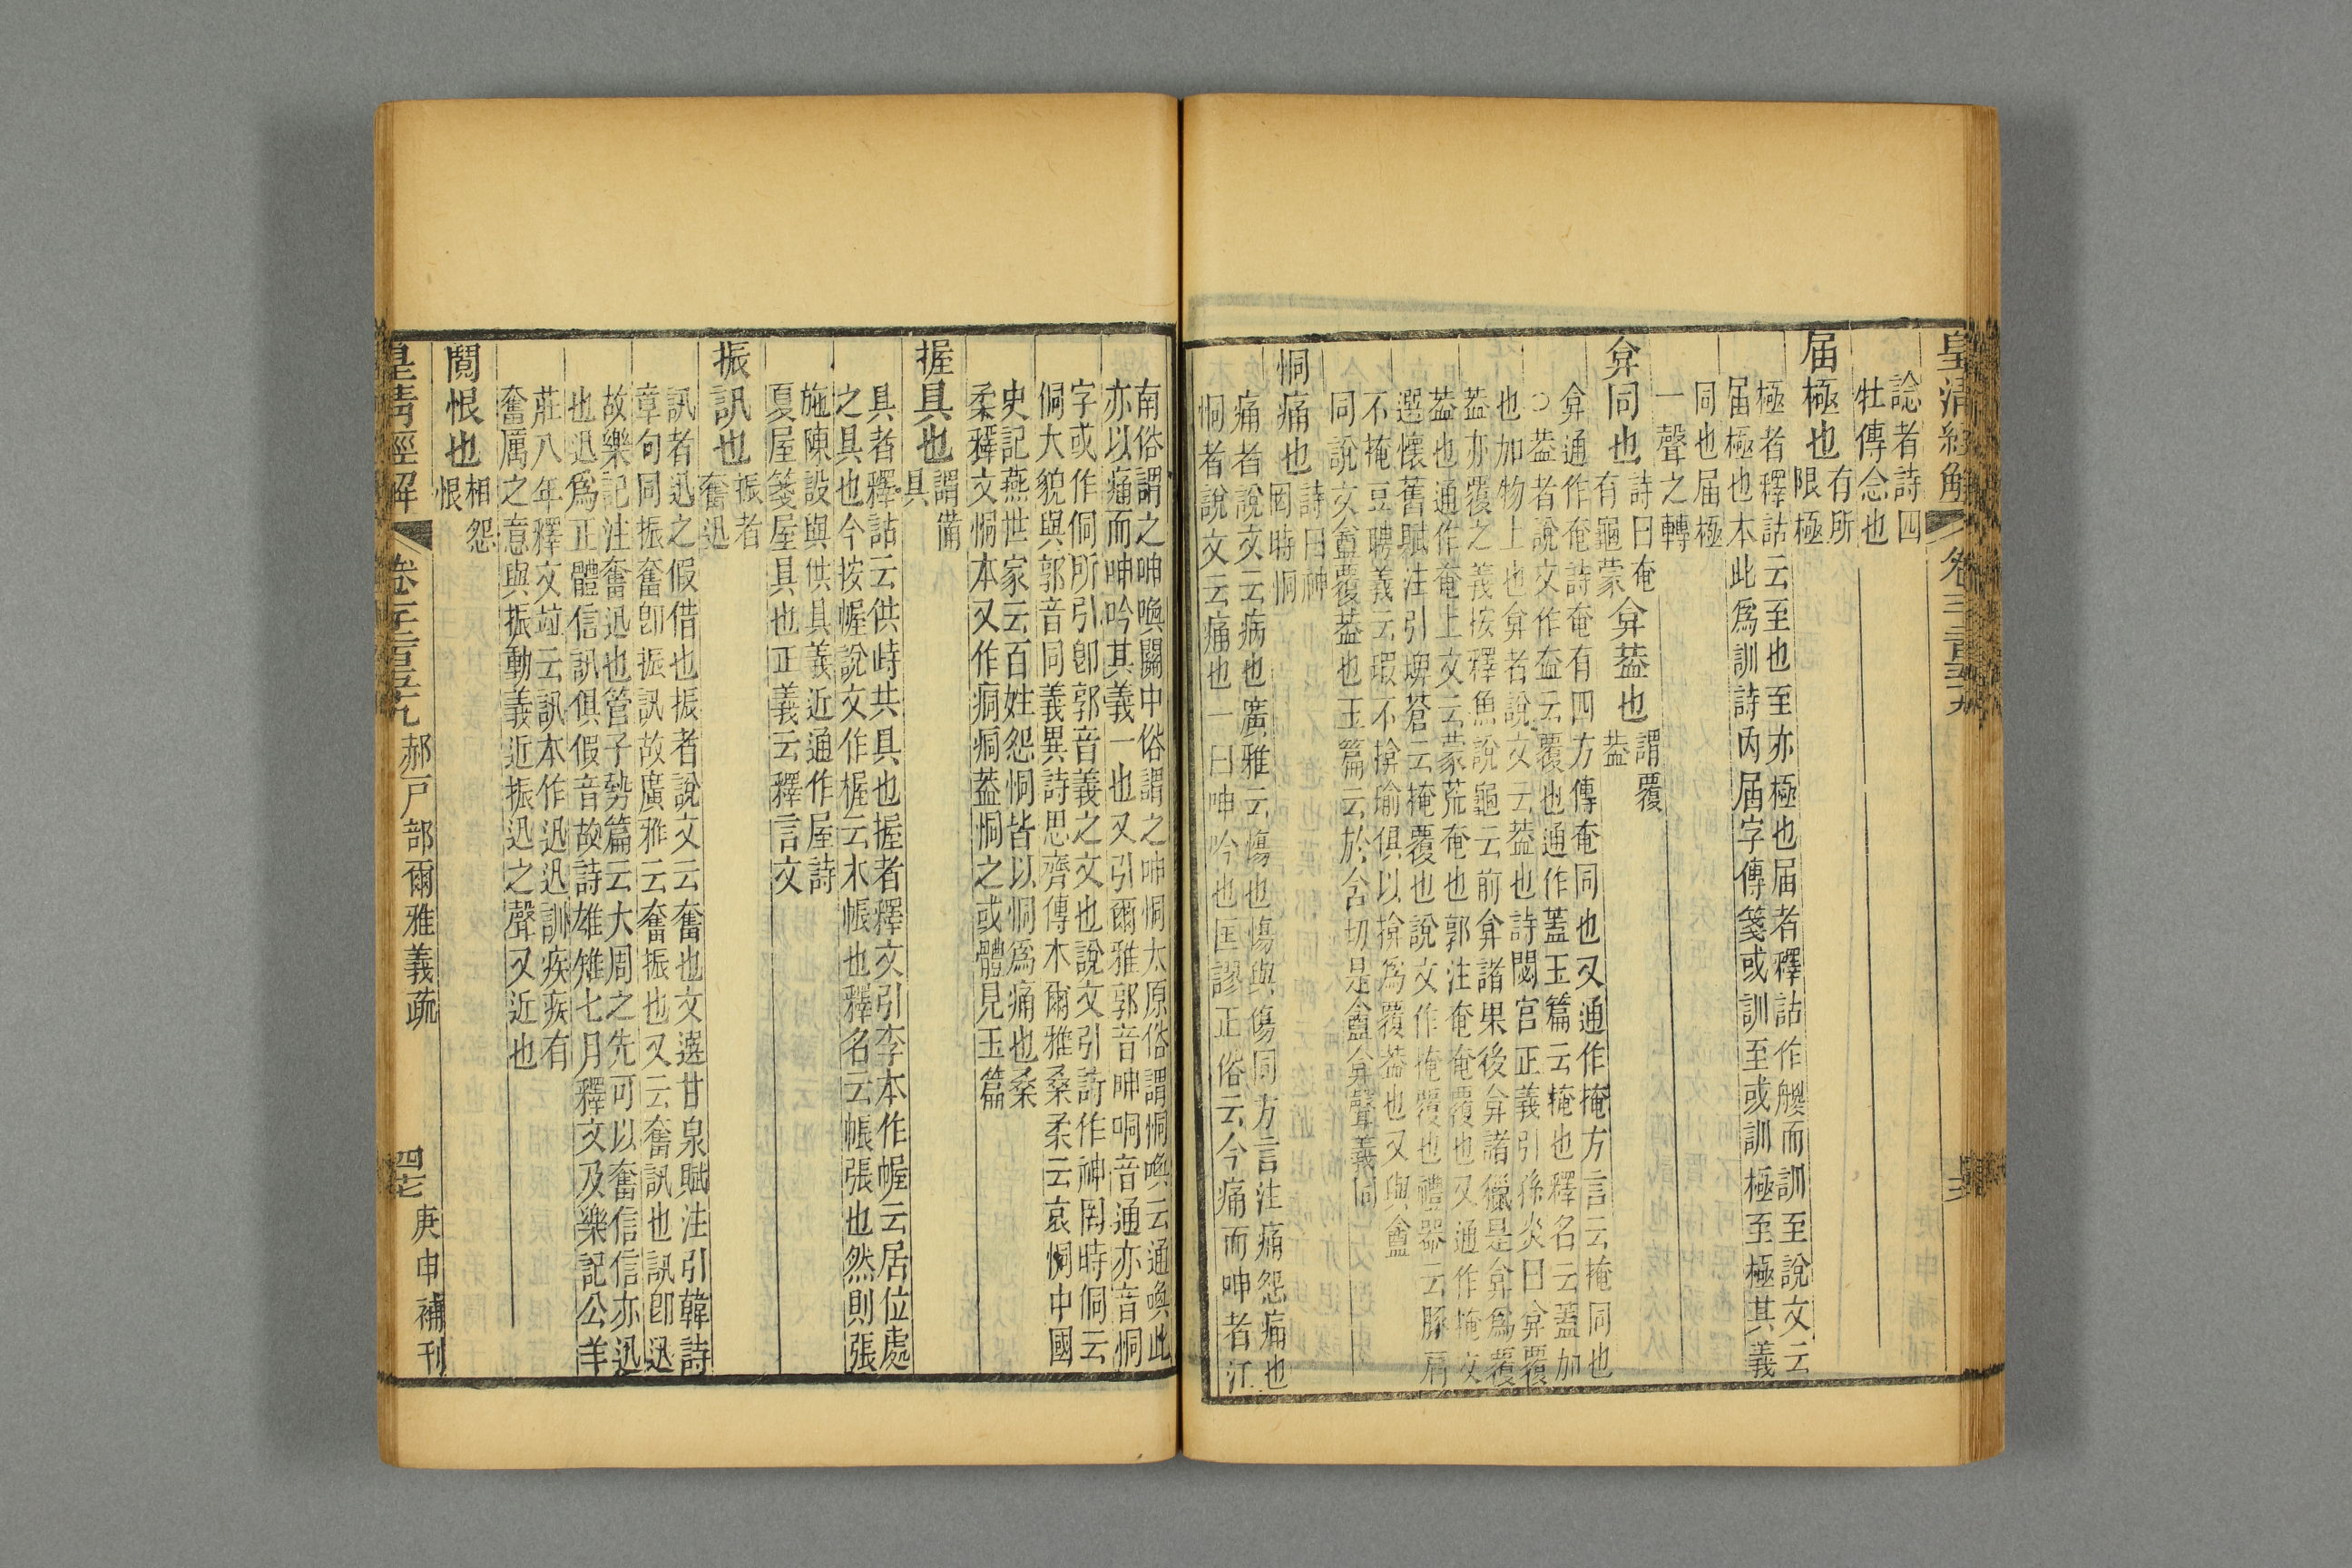 皇清經解 卷
諗者詩四
牡傳念也
屆極也 有所
限極
極者釋詁云至也至亦極也屆者釋詁作艐而訓至說文云
屆極也本此爲訓詩內屆字傳箋或訓至或訓極至極其義
同也屆極
一聲之轉
弇同也 詩曰奄
有龜蒙
弇蓋也 謂覆
蓋
弇通作奄詩奄有四方傳奄同也又通作掩方言云掩同也
蓋者說文作葢云覆也通作蓋玉篇云掩也釋名云蓋加
也加物上也弇者說文云蓋也詩閟宮正義引孫炎曰弇覆
蓋亦覆之義按釋魚說龜云前弇諸果後弇諸獵是弇爲覆
蓋也通作奄上文云蒙荒奄也郭注奄奄覆也又通作掩文
選懷舊賦注引埤蒼云掩覆也說文作掩覆也禮器云豚肩
不掩豆聘義云瑕不揜瑜俱以揜爲覆蓋也又與盦
同說文盦覆蓋也玉篇云於含切是盦弇聲義同
恫痛也 詩曰神
罔時恫
痛者說文云病也廣雅云傷也傷與傷同方言注痛怨痛也
恫者說文云痛也一曰呻吟也匡謬正俗云今痛而呻者江
南俗謂之呻喚關中俗謂之呻恫太原俗謂恫喚云通喚此
亦以痛而呻吟其義一也又引爾雅郭音呻哃音通亦音恫
字或作侗所引卽郭音義之文也說文引詩作神罔時侗云
侗大貌與郭音同義異詩思齊傳本爾雅桑柔云哀恫中國
史記燕世家云百姓怨恫皆以恫爲痛也桑
柔釋文恫本又作痌痌蓋恫之或體見玉篇
握具也 謂備
具
具者釋詁云供峙共具也握者釋文引李本作幄云居位處
之具也今按幄說文作楃云木帳也釋名云帳張也然則張
施陳設與供具義近通作屋詩
夏屋箋屋具也正義云釋言文
振訊也 振者
奮迅
訊者迅之假借也振者說文云奮也文選甘泉賦注引韓詩
章句同振奮卽振訊故廣雅云奮振也又云奮訊也訊卽迅
故樂記注奮迅也管子勢篇云大周之先可以奮信信亦迅
也迅爲正體信訊俱假音故詩雄雉七月釋文及樂記公羊
莊八年釋文竝云訊本作迅迅訓疾疾有
奮厲之意與振動義近振迅之聲又近也
鬩恨也 相怨
恨
皇清經解 卷 郝戶部爾雅義疏 四七 庚申補刊